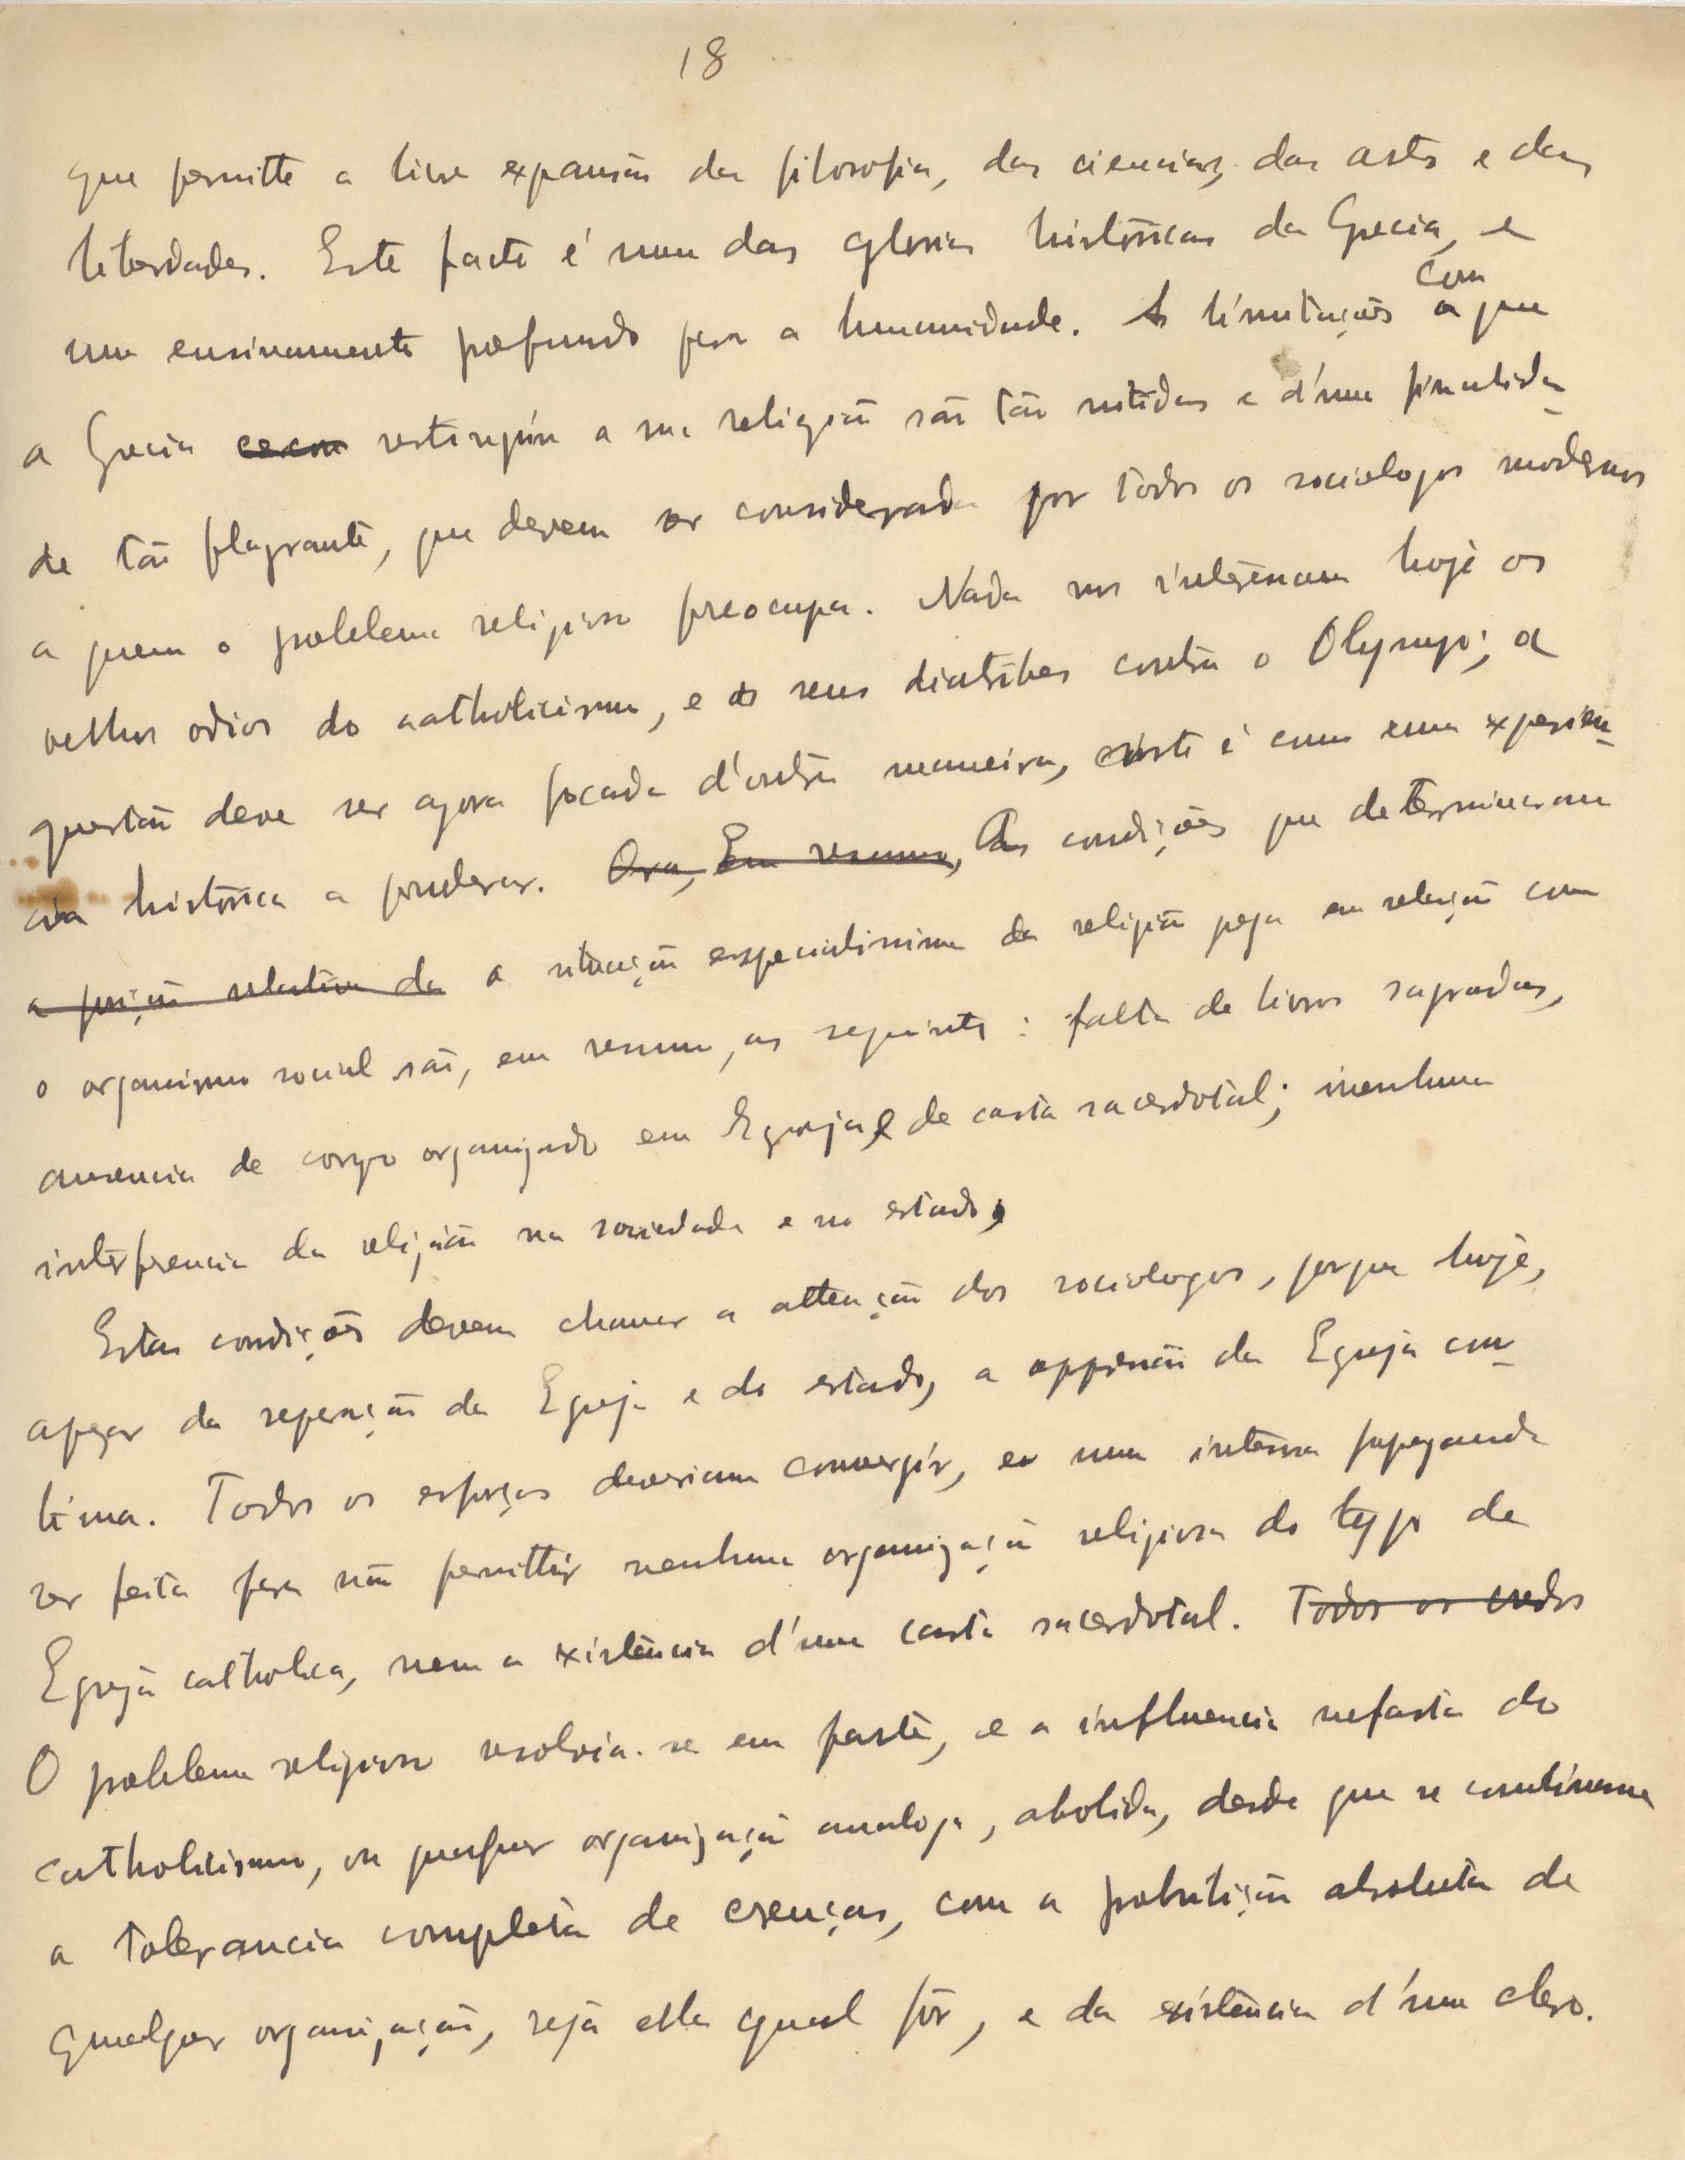 18
que permitte a livre expansão da filosofia, das ciencias, das artes e das
liberdades. Este facto é uma das glorias históricas da Grecia, e
um ensinamento profundo para a humanidade. As limitações com a que
a Grecia com restringiu a sua religião são tão nitidas e d'uma finalida-
de tão flagrante, que devem ser considerada por todos os sociologos modernos
a quem o problema religioso preocupa. Nada nos interessam hoje os
velhos odios do catholicismo, e as seus diatribes contra o Olympo; a
questão deve ser agora focada d'outra maneira, isto é como uma experien-
cia histórica a ponderar. Ora, Em resumo, As condições que determinaram
a posição relativa da a situação especialissima da religião pagã em relação com
o organismo social são, em resumo, as seguintes: falta de livros sagrados,
ausencia de corpo organizado em Egreja, e de casta sacerdotal; nenhuma
interferencia da religião na sociedade e no estado,
Estas condições devem chamar a attenção dos sociologos, porque hoje,
apezar da separação da Egreja e do estado, a oppressão da Egreja con-
tinua. Todos os esforços deveriam convergir, e uma intensa propaganda
ser feita para não permittir nenhuma organização religiosa do typo da
Egreja catholica, nem a existência d'uma casta sacerdotal. Todos os credos
O problema religioso resolvia-se em parte, e a influencia nefasta do
catholicismo, ou qualquer organização analoga, abolida, desde que se combinasse
a tolerancia completa de crenças, com a prohibição absoluta de
qualquer organização, seja ella qual fôr, e da existência d'um clero.